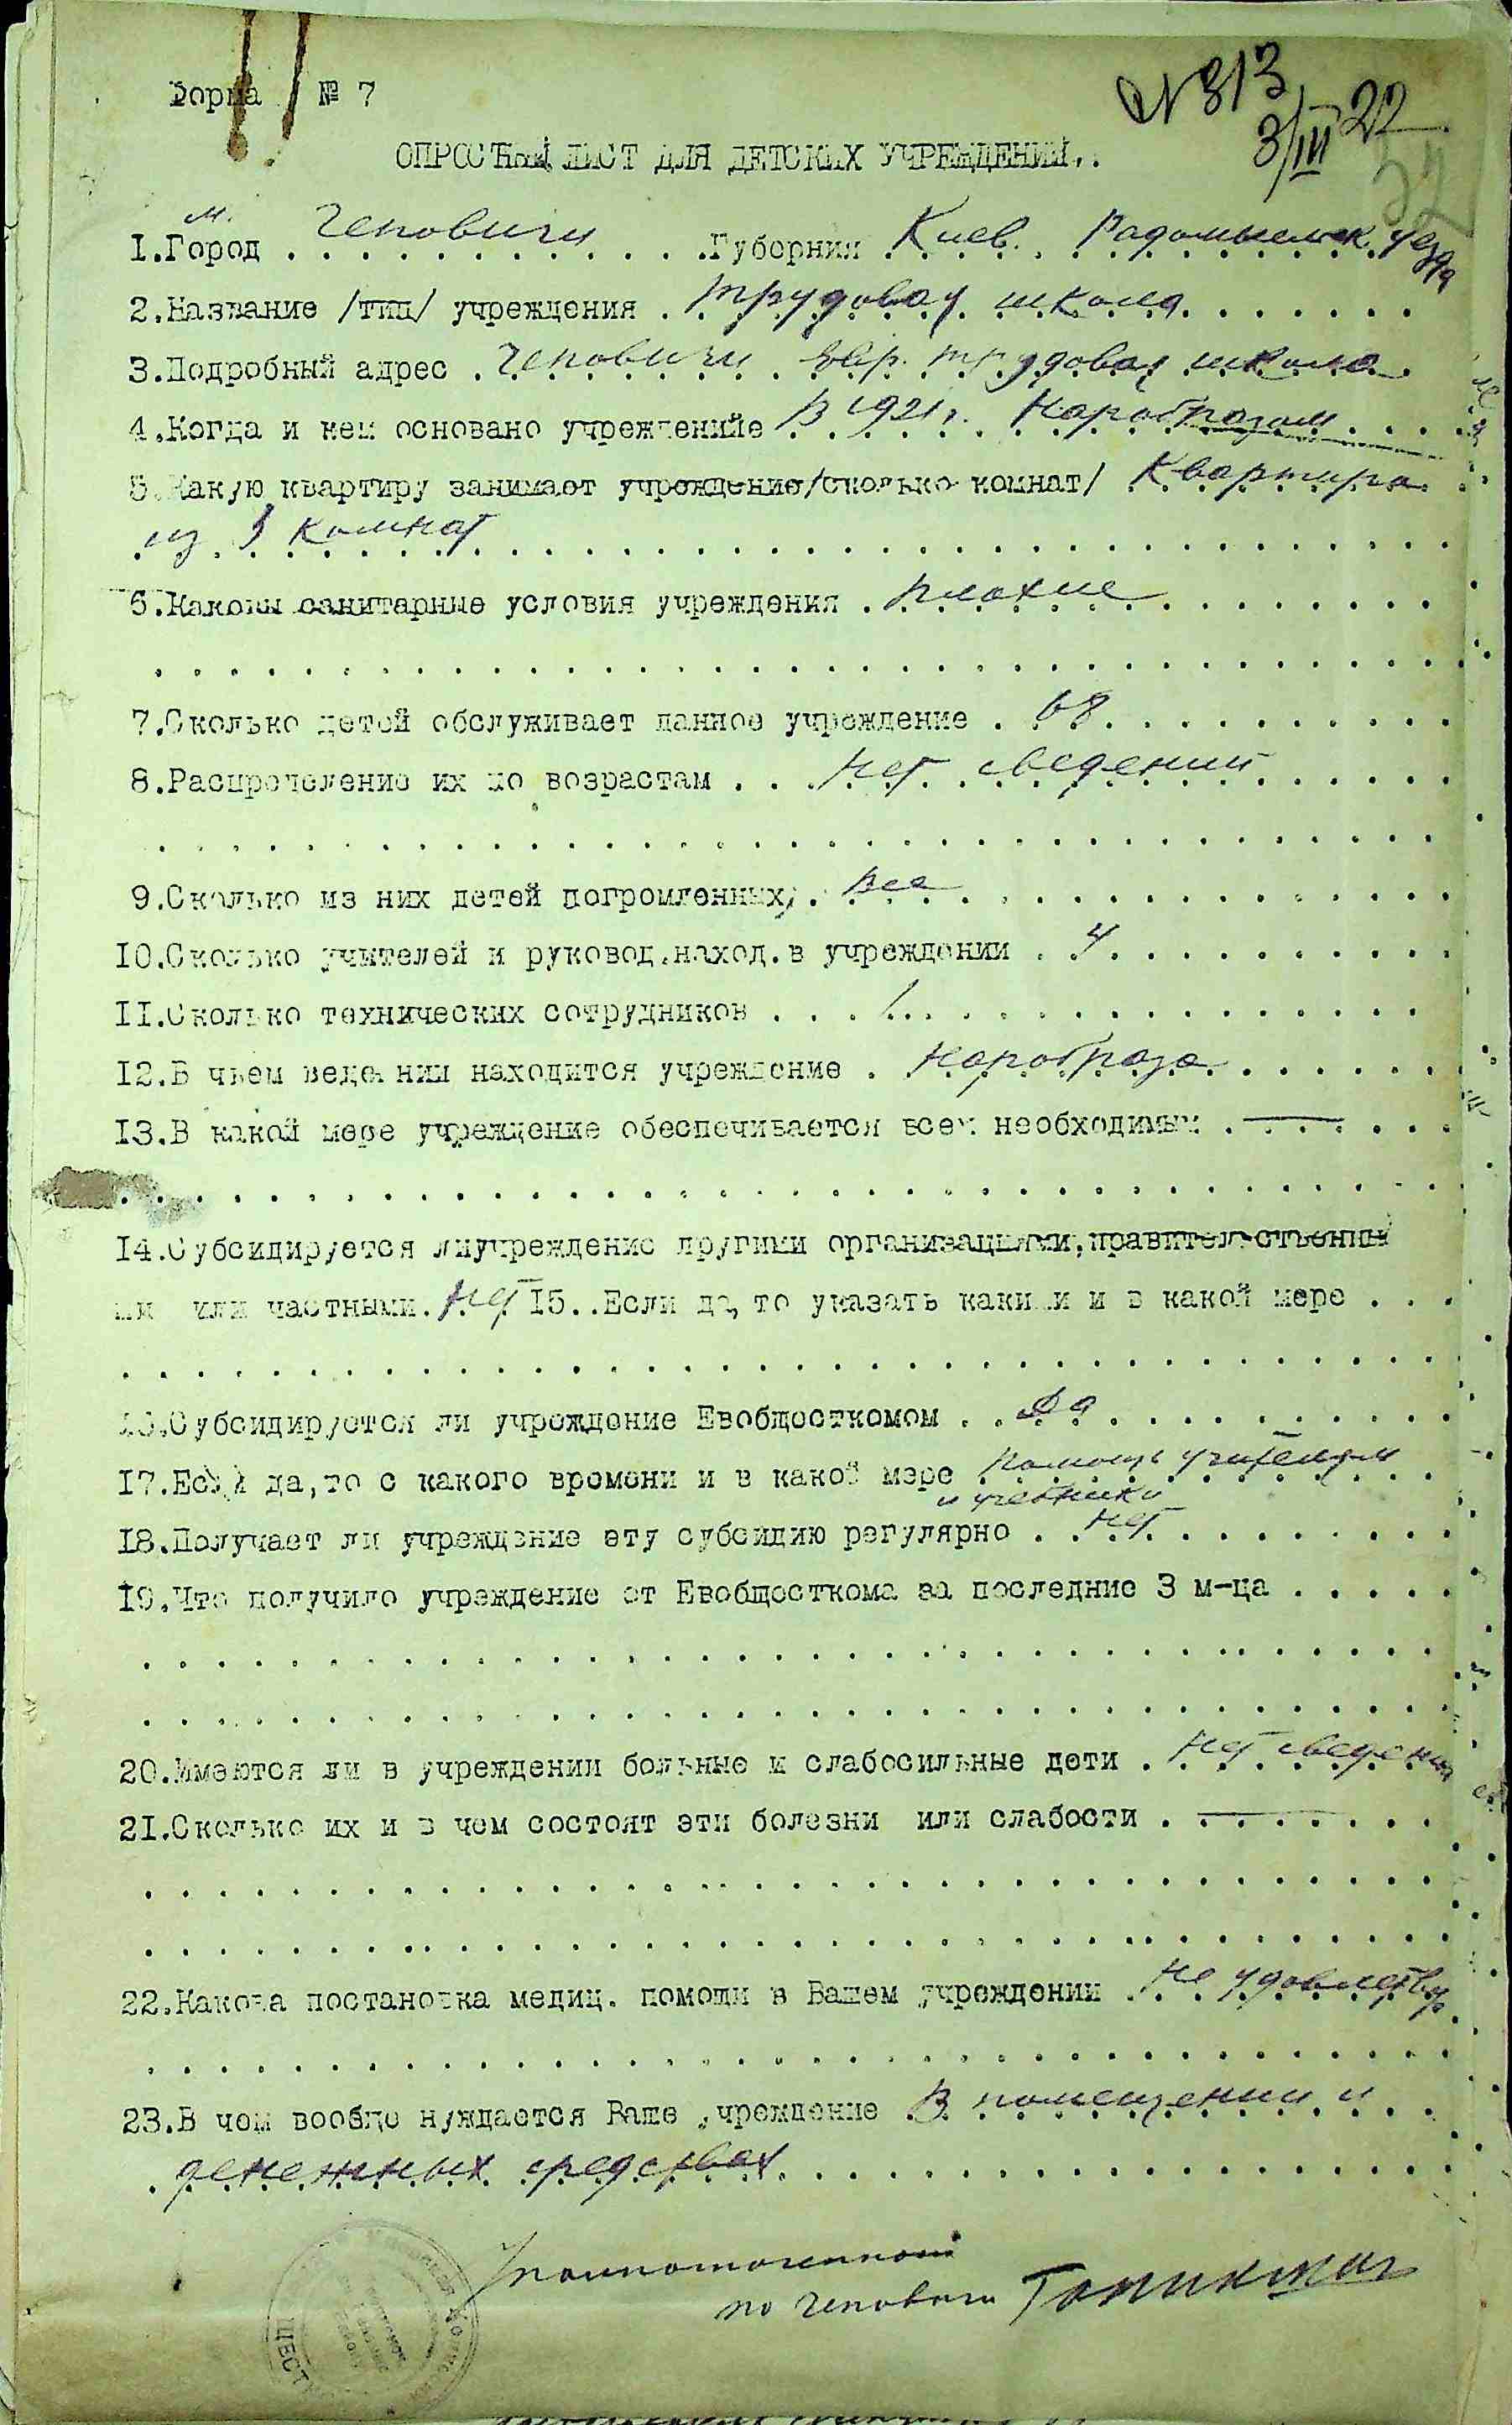 Форма № 7
№ 313
3/III 22
ОПРОСНЫЙ ЛИСТ ДЛЯ ДЕТСКИХ УЧРЕЖДЕНИЙ.
I.Город м. Чеповичи Губерния Киев. Радомысльск. уезда
2.Название /тип/ учреждения . Трудовая школа
3.Подробный адрес . Чеповичи Евр. трудовая школа
4.Когда и кем основано учреждениие В 1921 г. Наробразом
5.Какую квартиру занимает учреждение/сколько комнат/ Квартира
из 3 комнат
6.Каковы санитарные условия учреждения . плохие
7.Сколько детей обслуживает данное учреждение . 68
8.Распределение их по возрастам . . нет сведений
9.Сколько из них детей погромленных, . все
10.Сколько учителей и руковод.наход.в учреждении . 4
11.Сколько технических сотрудников . . . 1
12.В чьем ведении находится учреждение . Наробраза
13.В какой мере учреждение обеспечивается всем необходимым . —
14.Субсидируется лиучреждение другими организациями,правительственны
ми или частными. Нет 15..Если да, то указать какими и в какой мере . . .
16.Субсидируется ли учреждение Евобщесткомом . . Да
17.Если да,то с какого времени и в какой мере помощь учителям
и учебники
18.Получает ли учреждение эту субсидию регулярно . . нет
19.Что получило учреждение от Евобщесткома за последние 3 м-ца . . . . .
20.Имеются ли в учреждении больные и слабосильные дети . Нет сведений
21.Сколько их и в чем состоят эти болезни или слабости . —
22.Какова постановка медиц. помощи в Вашем учреждении . Не удовлетвор.
23.В чем вообще нуждается Ваше учреждение . В помещении и
денежных средствах
Уполномоченный
по Чеповичи